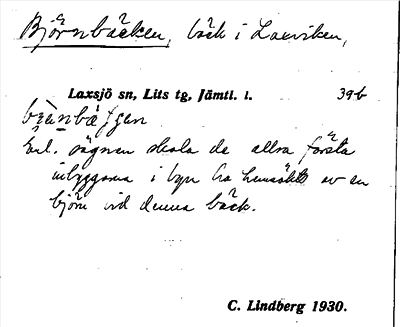 Björnbäcken, bäck i Laxviken,
Laxsjö sn, Lits tg, Jämtl. l. 39b
Enl. sägnen skola de allra första
inbyggarna i byn ha hemsökts av en
björn vid denna bäck.
C. Lindberg 1930.